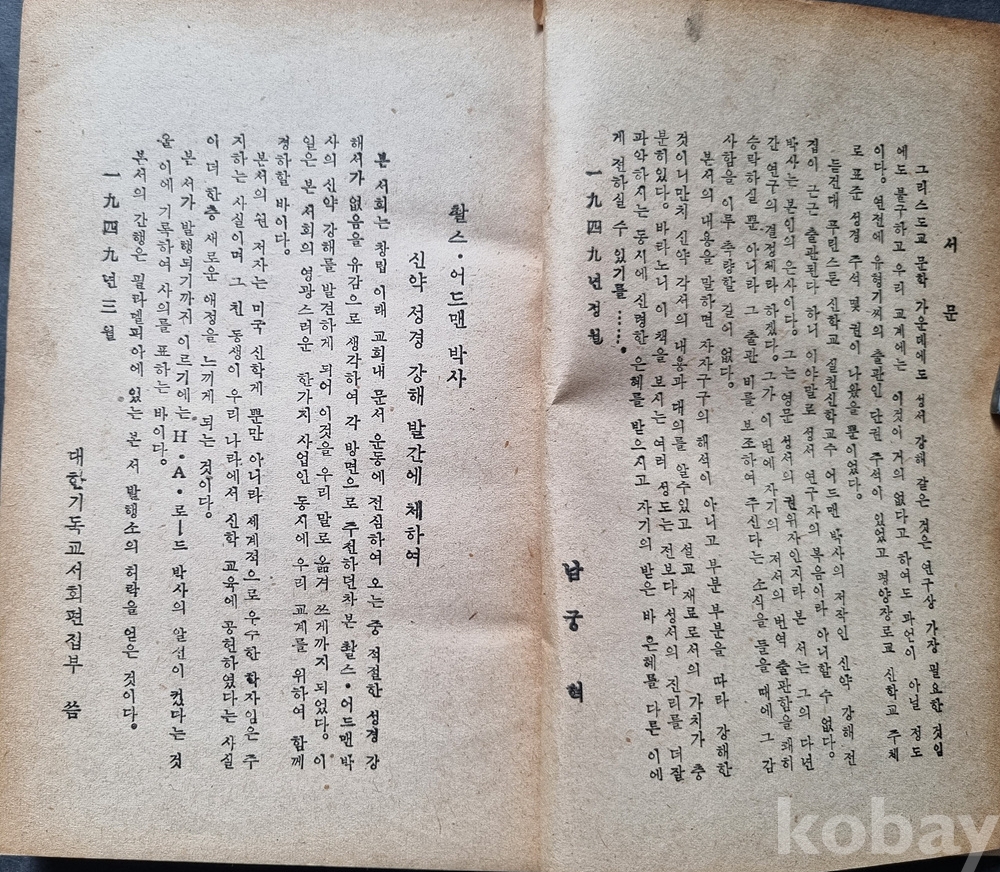 서문
그리스도교 문학 가운데에도 성서 강해 같은 것은 연구상 가장 필요한 것임
에도 불구하고 우리 교계에는 이것이 거의 없다고 하여도 과언이 아닐 정도
이다. 연전에 유형기씨의 출판인 단권 주석이 있었고 평양장로교 신학교 주체
로 표준 성경 주석 몇 권이 나왔을 뿐이었다.
듣건대 푸린스톤 신학교 실천신학교수 어드맨 박사의 저작인 신약 강해 전
집이 근근 출판된다 하니 이야말로 성서 연구자의 복음이라 아니할 수 없다.
박사는 본인의 은사이다. 그는 영문 성서의 권위자인지라 본 서는 그의 다년
간 연구의 결정체라 하겠다. 그가 이 번에 자기의 저서의 번역 출판함을 쾌히
승락하실 뿐 아니라 그 출판 비를 보조하여 주신다는 소식을 들을 때에 그 감
사함을 이루 측량할 길이 없다.
본서의 내용을 말하면 자자구구의 해석이 아니고 부분 부분을 따라 강해한
것이니만치 신약 각서의 내용과 대의를 알수있고 설교 재료로서의 가치가 충
분히있다. 바라노니 이 책을 보시는 여러 성도는 전보다 성서의 진리를 더잘
과악하시는 동시에 신령한 은혜를 받으시고 자기의 받은 바 은혜를 다른 이에
게 전하실 수 있기를…….
一九四九년 정월
남궁혁
촬스·어드맨 박사
신약 성경 강해 발간에 제하여
본 서회는 창립 이래 교회내 문서 운동에 전심하여 오는 중 적절한 성경 강
해서가 없음을 유감으로 생각하여 각 방면으로 주선하던차 본 촬스·어드맨 박
사의 신약 강해를 발견하게 되어 이것을 우리 말로 옮겨 쓰게까지 되었다. 이
일은 본 서회의 영광스러운 한가지 사업인 동시에 우리 교계를 위하여 함께
경하할 바이다.
본서의 원 저자는 미국 신학계 뿐만 아니라 세계적으로 우수한 학자임은 주
지하는 사실이며 그 친 동생이 우리 나라에서 신학 교육에 공헌하였다는 사실
이 더 한층 새로운 애정을 느끼게 되는 것이다.
본 서가 발행되기까지 이르기에는 H·A·로―드 박사의 알선이 컸다는 것
을 이에 기록하여 사의를 표하는 바이다.
본서의 간행은 필라델피아에 있는 본 서 발행소의 허락을 얻은 것이다.
一九四九년 三월
대한기독교서회편집부 씀
kobay